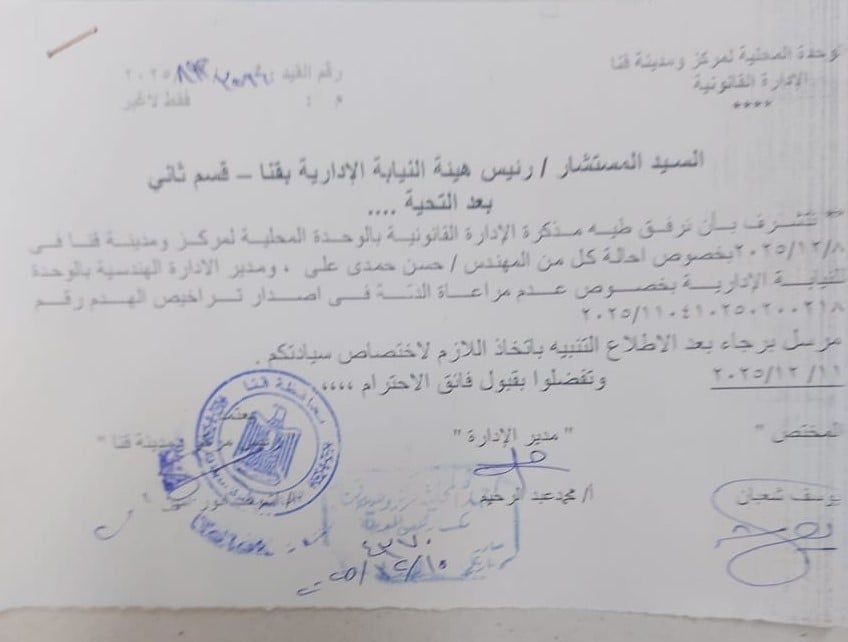 الوحدة المحلية لمركز ومدينة قنا
الإدارة القانونية
****
رقم القيد : ٢٠٢٥
م :
فقط لاغير
السيد المستشار / رئيس هيئة النيابة الإدارية بقنا – قسم ثاني
بعد التحية ....
** نتشرف بأن نرفق طيه مذكرة الإدارة القانونية بالوحدة المحلية لمركز ومدينة قنا في
٢٠٢٥/١٢/٨ بخصوص احالة كل من المهندس / حسن حمدى على ، ومدير الادارة الهندسية بالوحدة
للنيابة الإدارية بخصوص عدم مراعاة الدقة فى اصدار تراخيص الهدم رقم
٢٠٢٥/١١٠٤١٠٢٥٠٢٠٠٢١٨
مرسل برجاء بعد الاطلاع التنبيه باتخاذ اللازم لاختصاص سيادتكم .
٢٠٢٥/١٢/١١
وتفضلوا بقبول فائق الاحترام ،،،،
المختص "
" مدير الإدارة "
يعتمد
مدينة قنا "
يوسف شعبان
أ/ محمد عبد الرحيم
محافظة قنا